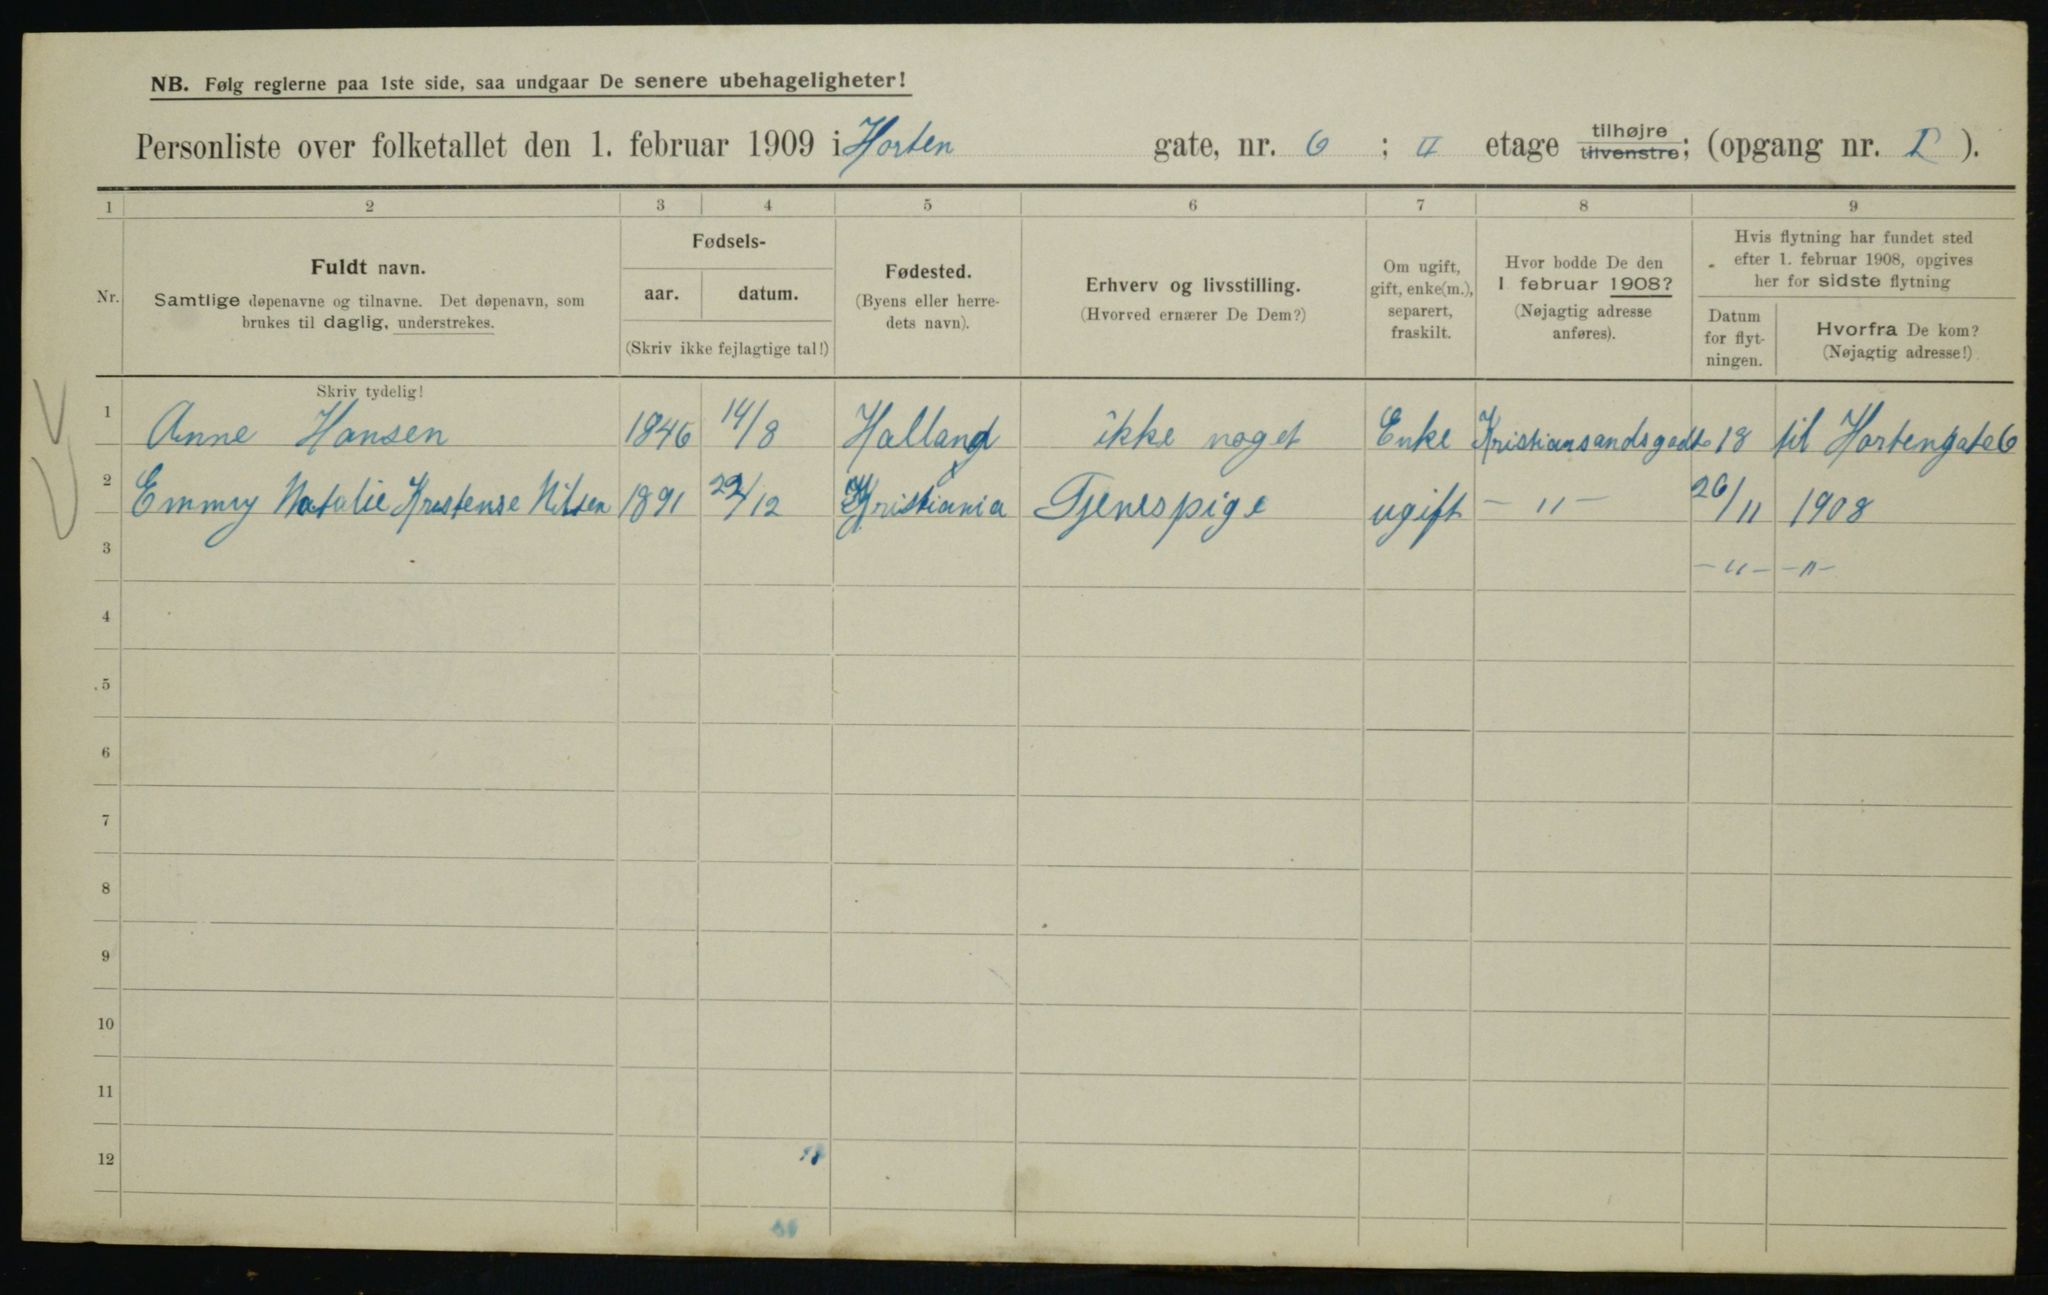 NB. Følg reglerne paa 1ste side, saa undgaar De senere ubehageligheter!
Personliste over folketallet den 1. februar 1909 i Horten gate, nr. 6 ; II etage tilhøjre tilvenstre; (opgang nr. I ).
1 2 3 4 5 6 7 8 9
Nr.
Fuldt navn.
Samtlige døpenavne og tilnavne. Det døpenavn, som
brukes til daglig, understrekes.
Fødsels-
aar. datum.
(Skriv ikke fejlagtige tal!)
Fødested.
(Byens eller herre-
dets navn).
Erhverv og livsstilling.
(Hvorved ernærer De Dem?)
Om ugift,
gift, enke(m.),
separert,
fraskilt.
Hvor bodde De den
1. februar 1908?
(Nøjagtig adresse
anføres).
Hvis flytning har fundet sted
efter 1. februar 1908, opgives
her for sidste flytning
Datum
for flyt-
ningen.
Hvorfra De kom?
(Nøjagtig adresse!)
Skriv tydelig!
1 Anne Hansen 1846 14/8 Halland ikke noget Enke Kristiansandsgadt 18 til Hortengate 6
2 Emmy Natalie Kristense Nilsen 1891 22/12 Kristiania Tjenespige ugift — " — 26/11 1908
3 — " — — " —
4
5
6
7
8
9
10
11
12